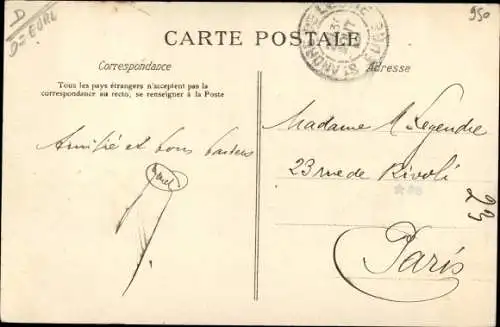 D
D=EURE
950
CARTE POSTALE
Correspondance
Adresse
Tous les pays étrangers n'acceptent pas la
correspondance au recto, se renseigner à la Poste
Amitié et bons baisers
Madame Legendre
23 rue de Rivoli
23
Paris